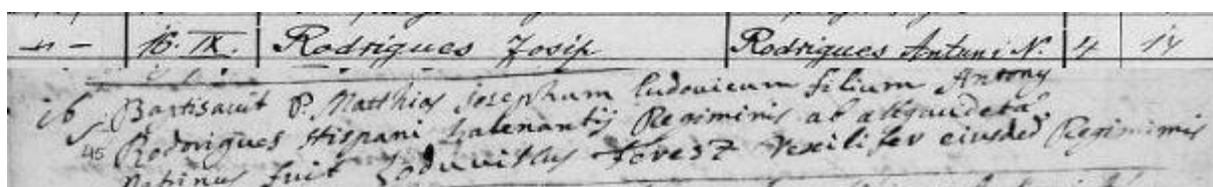 -"- 16. IX. Rodrigues Josip Rodrigues Antun i N. 4 14
16 Baptisavit P. Matthias Josephum Ludovicum filium Antony
45 Rodorigues Hispani Regiminis ab
Patrinus fuit Lodovitus Forest Vexilifer eiusded Regiminis